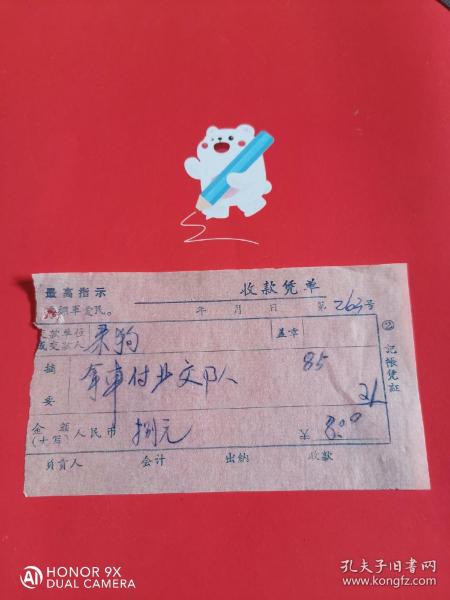 最高指示
拥军爱民。
收款凭单
年 月 日 第263号
交款单位
或交款人
盖章
摘 85
要
金额 人民币 捌元 ¥8.00
(大写)
负责人 会计 出纳 收款
② 记帐凭证
HONOR 9X
DUAL CAMERA
孔夫子旧书网
www.kongfz.com